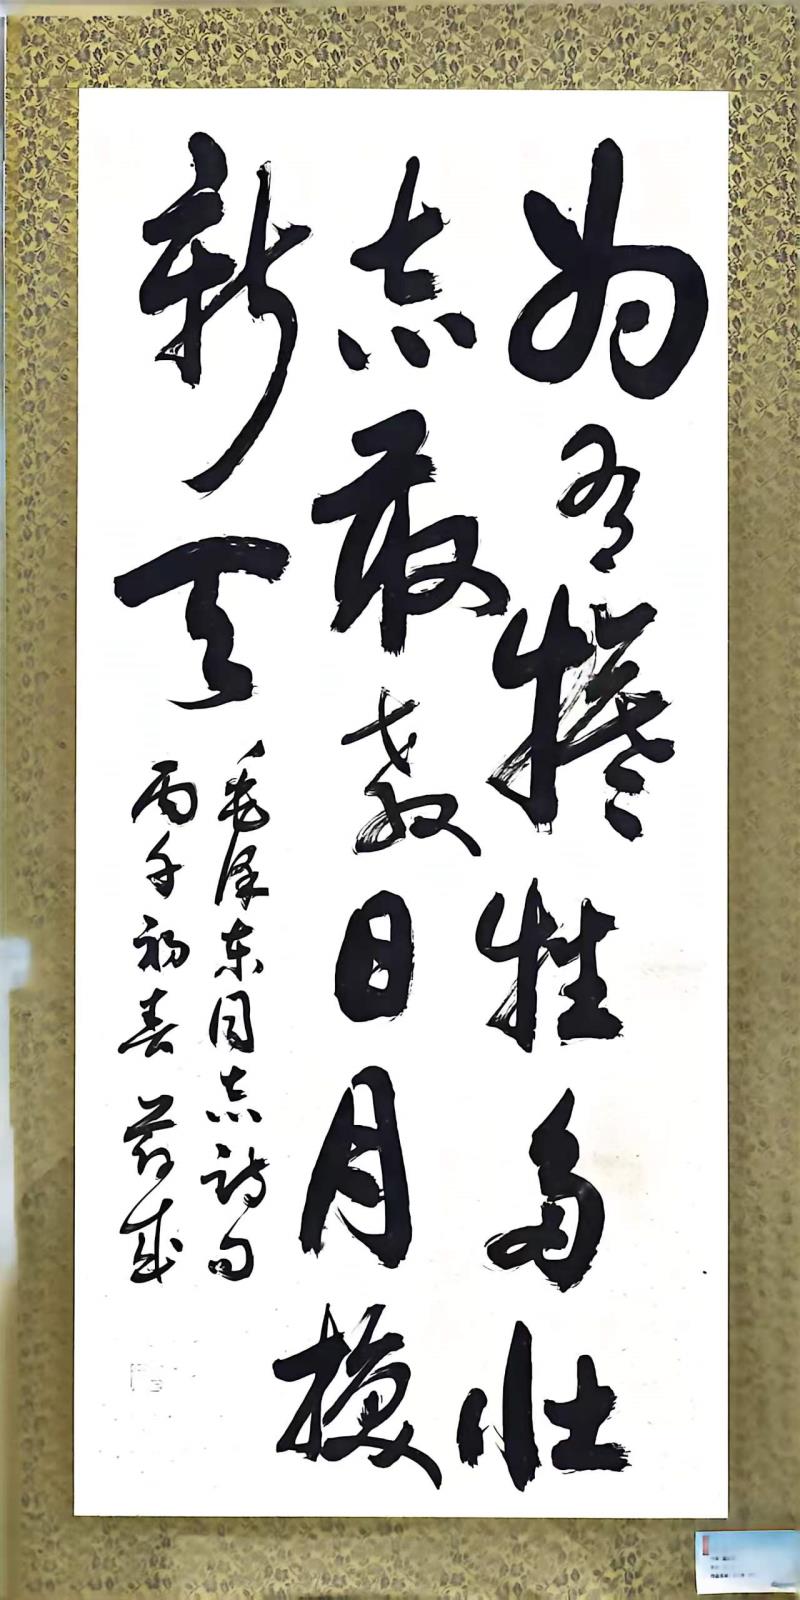 为有牺牲多壮
志敢教日月换
新天
毛泽东同志诗句
丙午初春